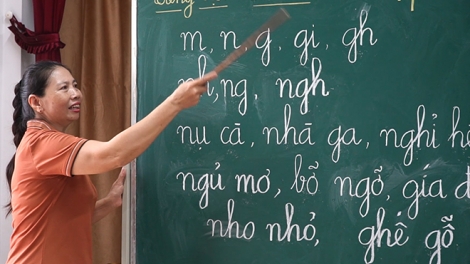 m, n, g, gi, gh
nh, ng, ngh
nụ cà, nhà ga, nghỉ
ngủ mơ, bổ ngỗ, gía
nho nhỏ, ghế gỗ